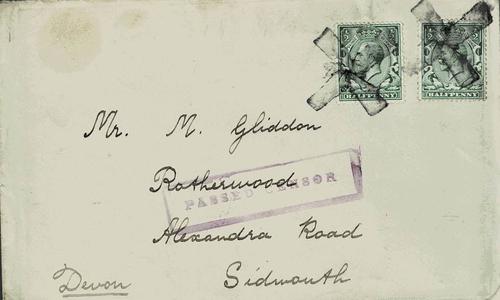 HALFPENNY HALFPENNY
Mr. M. Gliddon
Rotherwood
PASSED CENSOR
Alexandra Road
Devon Sidmouth